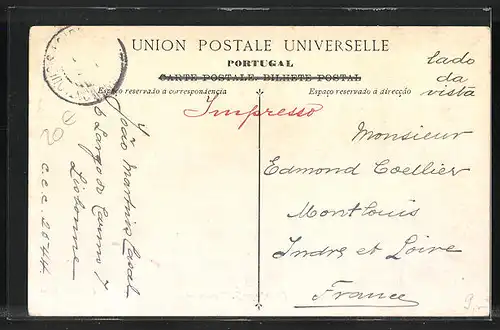 UNION POSTALE UNIVERSELLE
PORTUGAL
CARTE POSTALE. BILHETE POSTAL
Espaço reservado á correspondencia
Espaço reservado á direcção
lado
da
vista
Impresso
Monsieur
Edmond Coellier
Montlouis
Indre et Loire
France
João Martins Casal
Largo do Carmo 7
Lisbonne
C.C.C. 2044
20
9.-